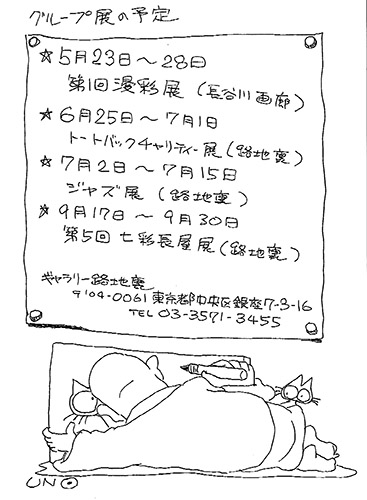 グループ展の予定
☆5月23日～28日
第1回漫彩展（長谷川画廊）
☆6月25日～7月1日
トートバックチャリティー展（路地裏）
☆7月2日～7月15日
ジャズ展（路地裏）
☆9月17日～9月30日
第5回七彩長屋展（路地裏）
ギャラリー路地裏
〒104-0061東京都中央区銀座7-3-16
TEL 03-3571-3455
UNO